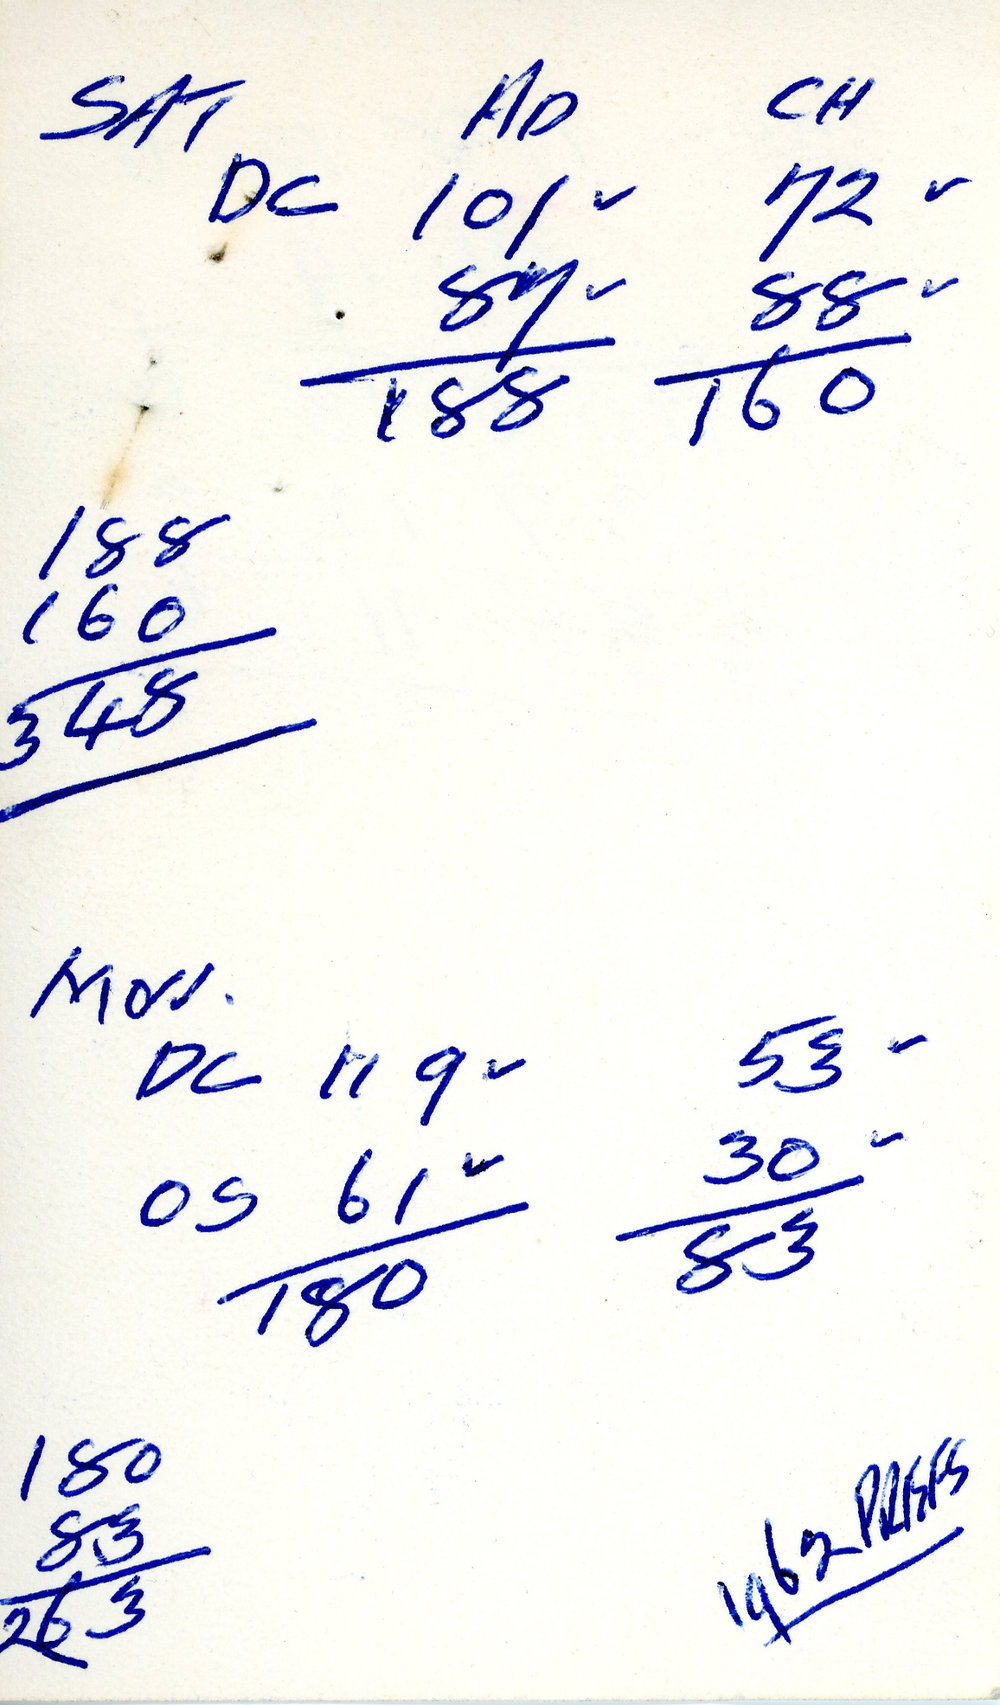 SAT AD CH
DC 101 ✓ 72 ✓
87 ✓ 88 ✓
188 160
188
160
348
MON.
DC 119 ✓ 53 ✓
OS 61 ✓ 30 ✓
180 83
180
83
263
1962 PRESS